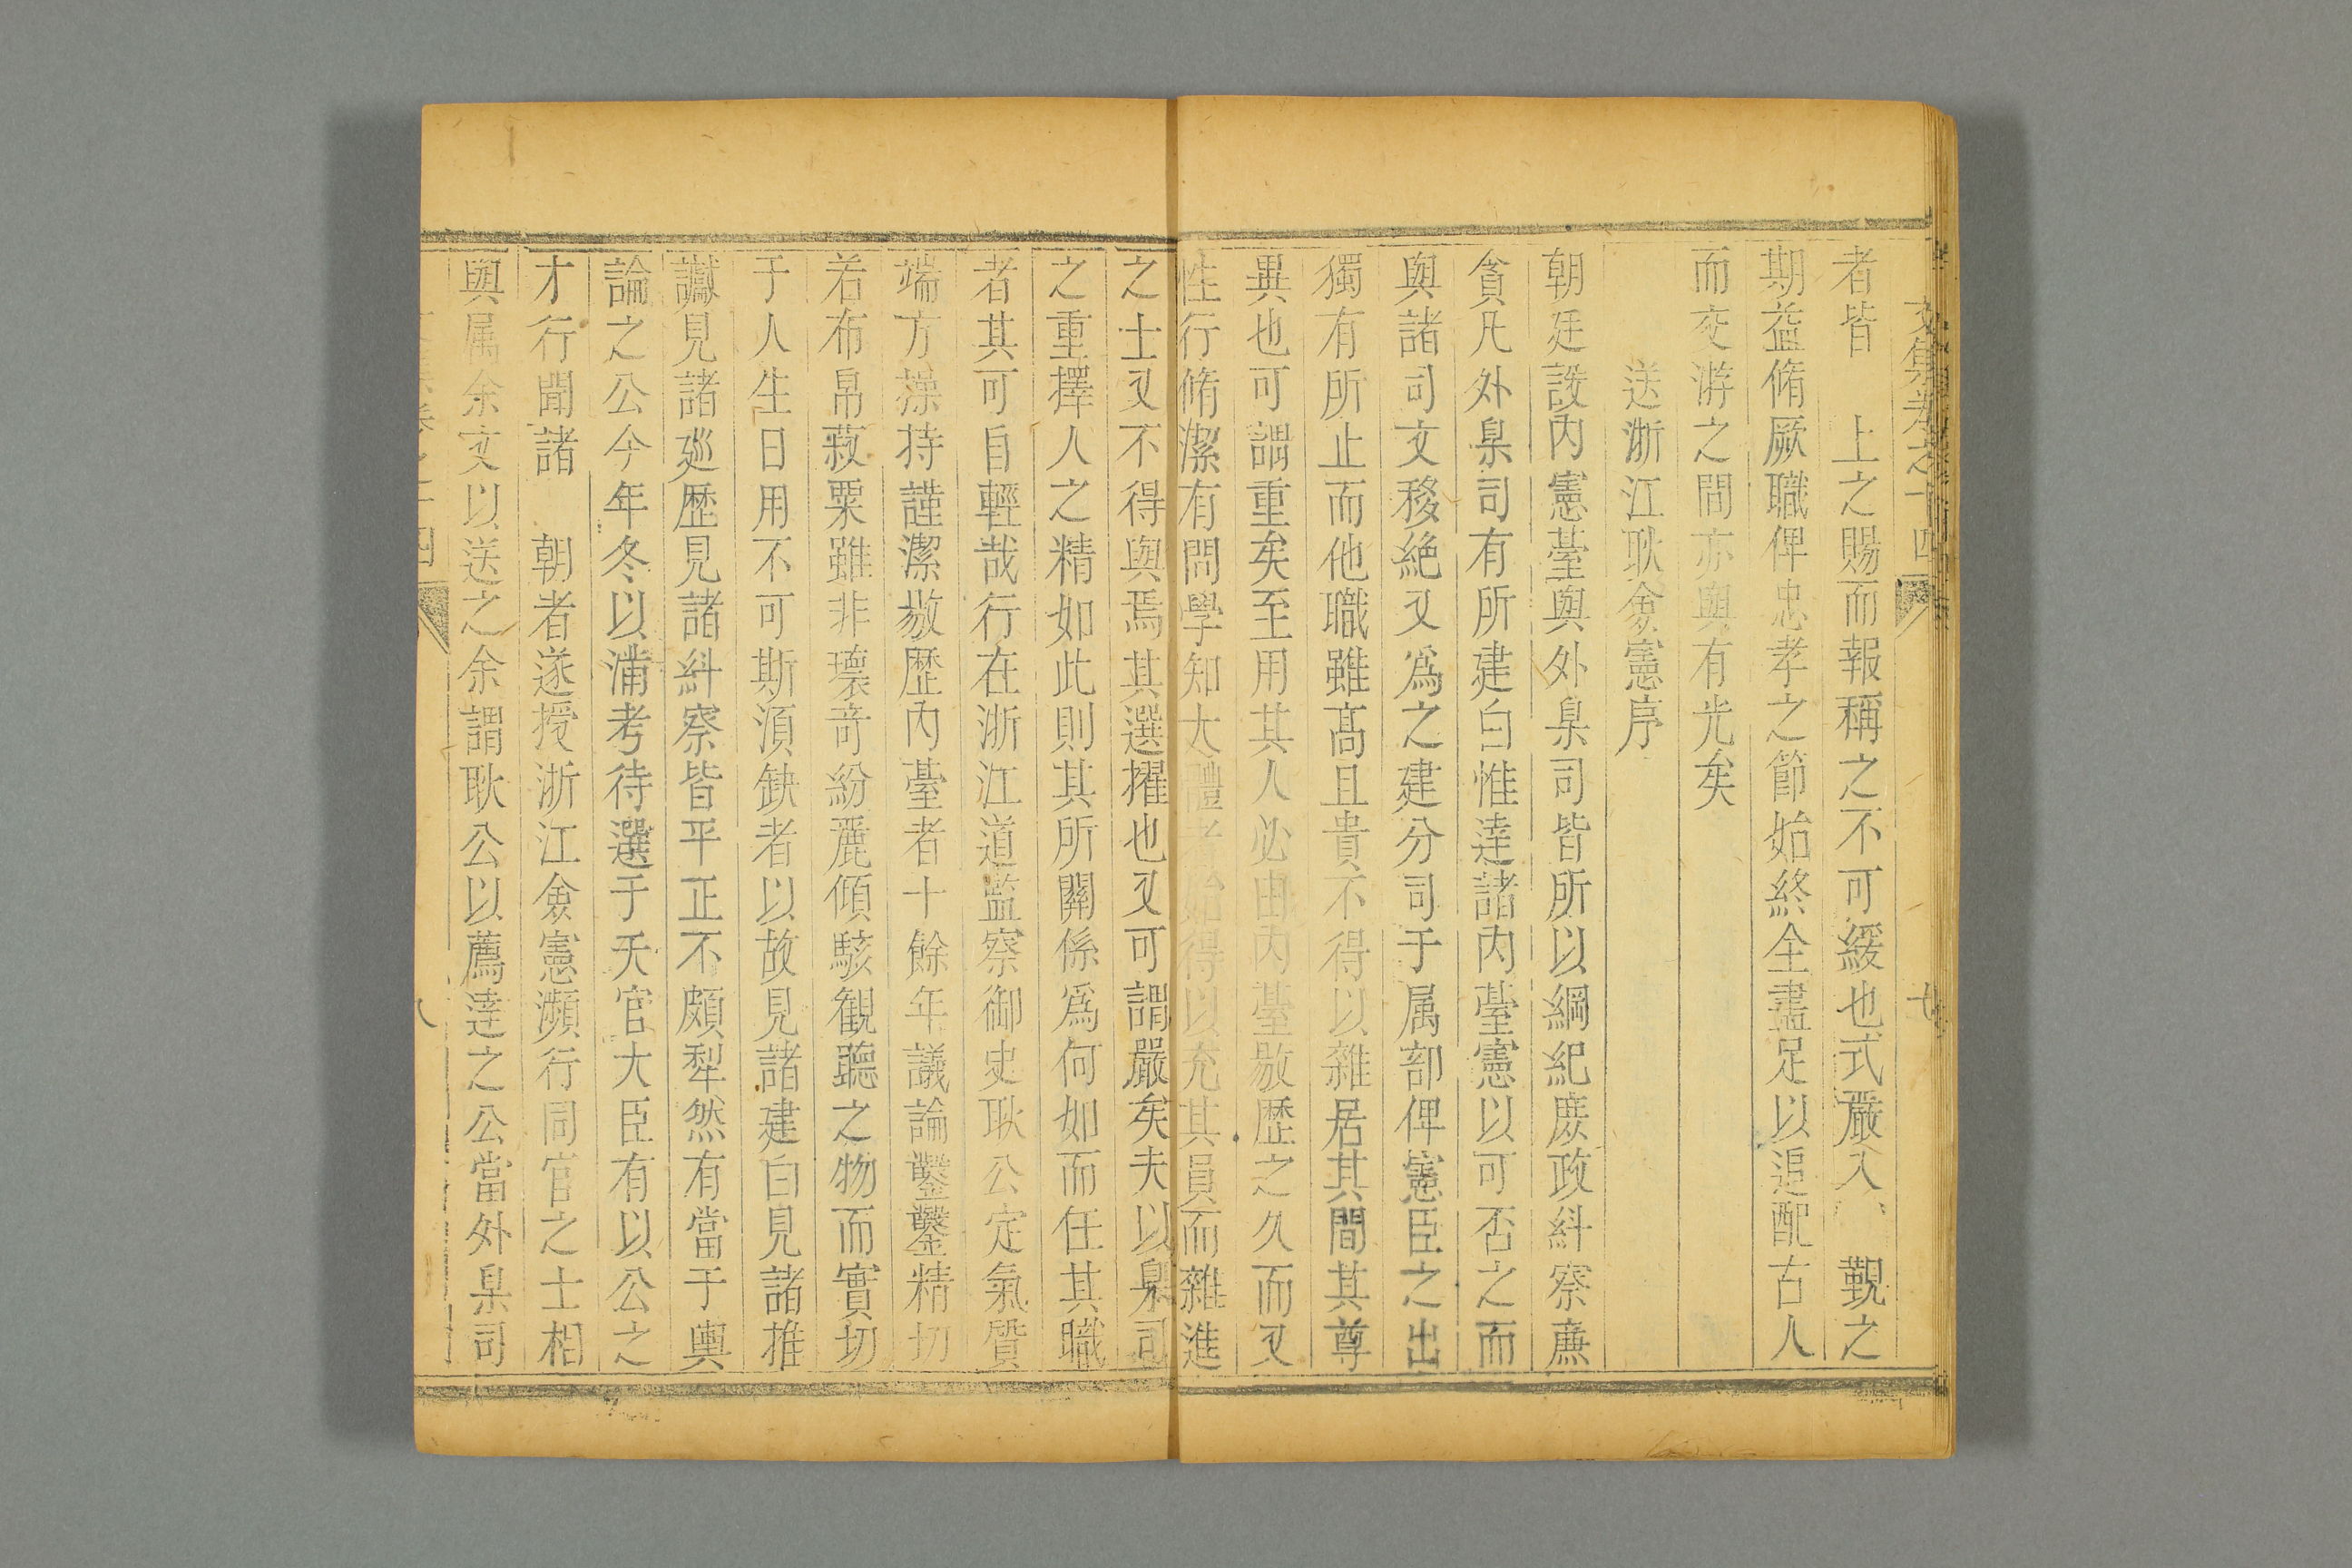 文集卷之十四
者皆　上之賜而報稱之不可緩也式嚴入　覲之
期益脩厥職俾忠孝之節始終全盡足以追配古人
而交游之間亦與有光矣
送浙江耿僉憲序
朝廷設內憲臺與外臬司皆所以綱紀庶政糾察亷
貪凡外臬司有所建白惟達諸內臺憲以可否之而
與諸司文移絶又爲之建分司于属部俾憲臣之出
獨有所止而他職雖髙且貴不得以雜居其間其尊
異也可謂重矣至用其人必由內臺敭歷之久而又
性行脩潔有問學知大體者始得以充其員而雜進
之士又不得與焉其選擢也又可謂嚴矣夫以臬司
之重擇人之精如此則其所關係爲何如而任其職
者其可自輕哉行在浙江道監察御史耿公定氣質
端方操持謹潔敭歷內臺者十餘年議論鑿鑿精切
若布帛菽粟雖非瓌竒紛麗傾駭観聽之物而實切
于人生日用不可斯湏缺者以故見諸建白見諸推
讞見諸廵歷見諸糾察皆平正不頗犁然有當于輿
論之公今年冬以滿考待選于天官大臣有以公之
才行聞諸　朝者遂授浙江僉憲瀕行同官之士相
與属余文以送之余謂耿公以薦達之公當外臬司